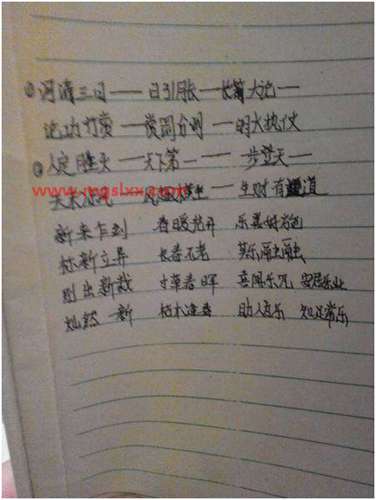 ①河清三日——日引月胀——长篇大论——
论功行赏——赏罚分明——明火执仗
②人定胜天——天下第一——一步登天——
www.mgslxx.com
生财有道
新来乍到 春暖花开 乐善好施
标新立异 长春不老 其乐融融
别出新裁 寸草春晖 喜闻乐见 安居乐业
灿然一新 枯木逢春 助人为乐 知足常乐